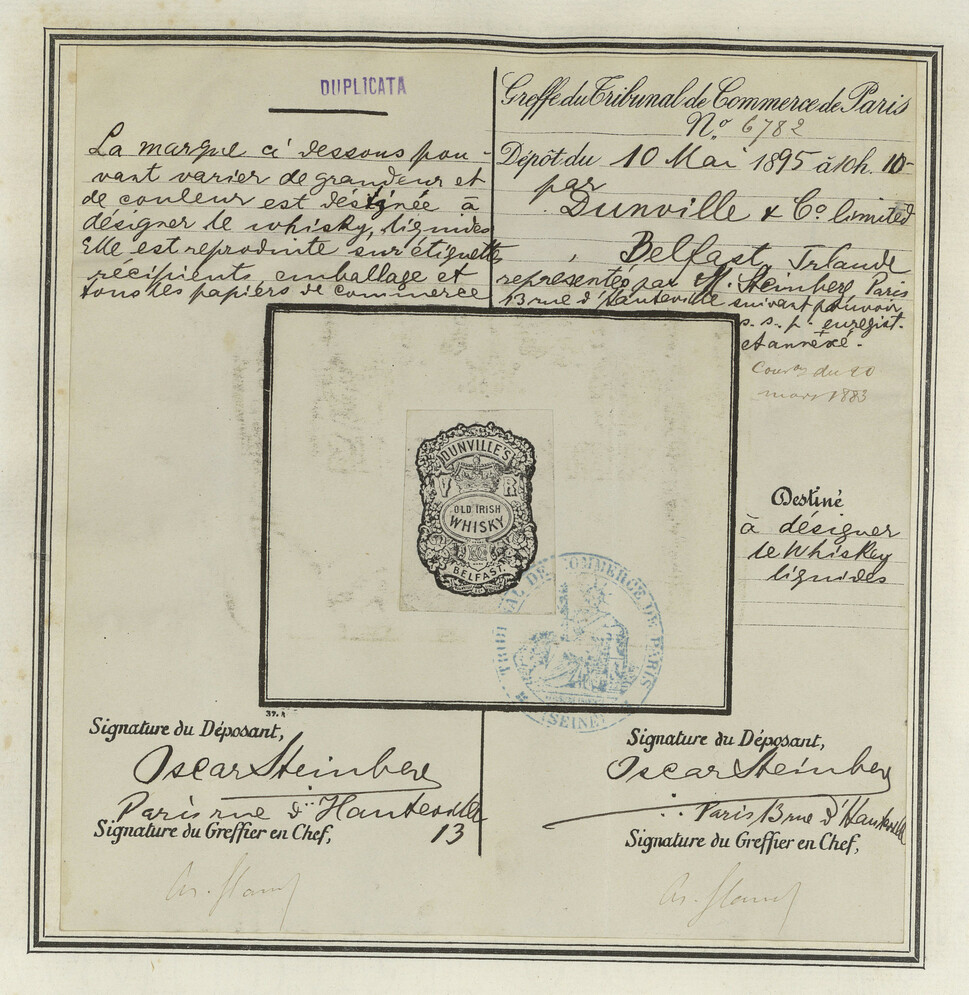 DUPLICATA
La marque ci dessous pou-
vant varier de grandeur et
de couleur est destinée à
désigner le whisky, liquides
Elle est reproduite sur étiquettes
récipients, emballage et
tous les papiers de commerce
Greffe du Tribunal de Commerce de Paris
No 6782
Dépôt du 10 Mai 1895 à 10h. 10-
par
Dunville & Co limited
Belfast, Irlande
représentés par M. Steinberg Paris
13 rue d'Hauteville suivant pouvoir
s. s. p. enregist.
et annexé.
du 20
mars 1883
DUNVILLE'S
V R
OLD IRISH
WHISKY
BELFAST.
Destiné
à désigner
le Whiskey
liquides
TRIBUNAL DE COMMERCE DE PARIS
(SEINE)
Signature du Déposant,
Oscar Steinberg
Paris rue d'Hauteville
13
Signature du Greffier en Chef,
Signature du Déposant,
Oscar Steinberg
Paris 13 rue d'Hauteville
Signature du Greffier en Chef,